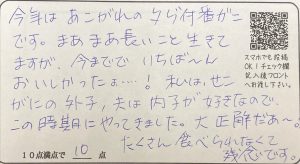 今年は あこがれの タグ付番ガニ
です。まあまあ長いこと 生きて
ますが、今までで いちば〜ん
おいしかったぁ…! 私は、せこ
がにの外子、夫は 内子が好きなので、
この時期にやってきました。大正解だぁ〜。
たくさん食べられなくて
残念です。
10点満点で 10 点
スマホでも投稿
OK!チェック欄
記入後フロント
へお渡し下さい。